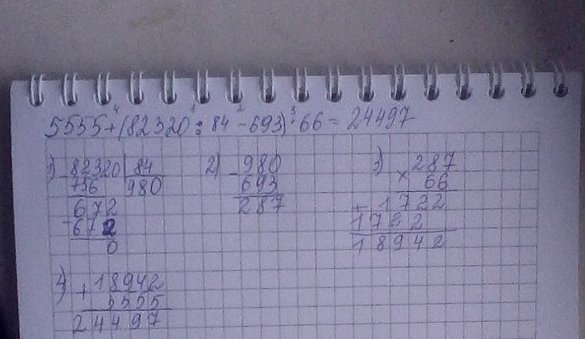 5555+(82320:84-693)·66=24497
1) 82320 | 84
756 980
672
672
0
2) - 980
693
287
3) × 287
66
+ 1722
1722
18942
4) + 18942
5555
24497